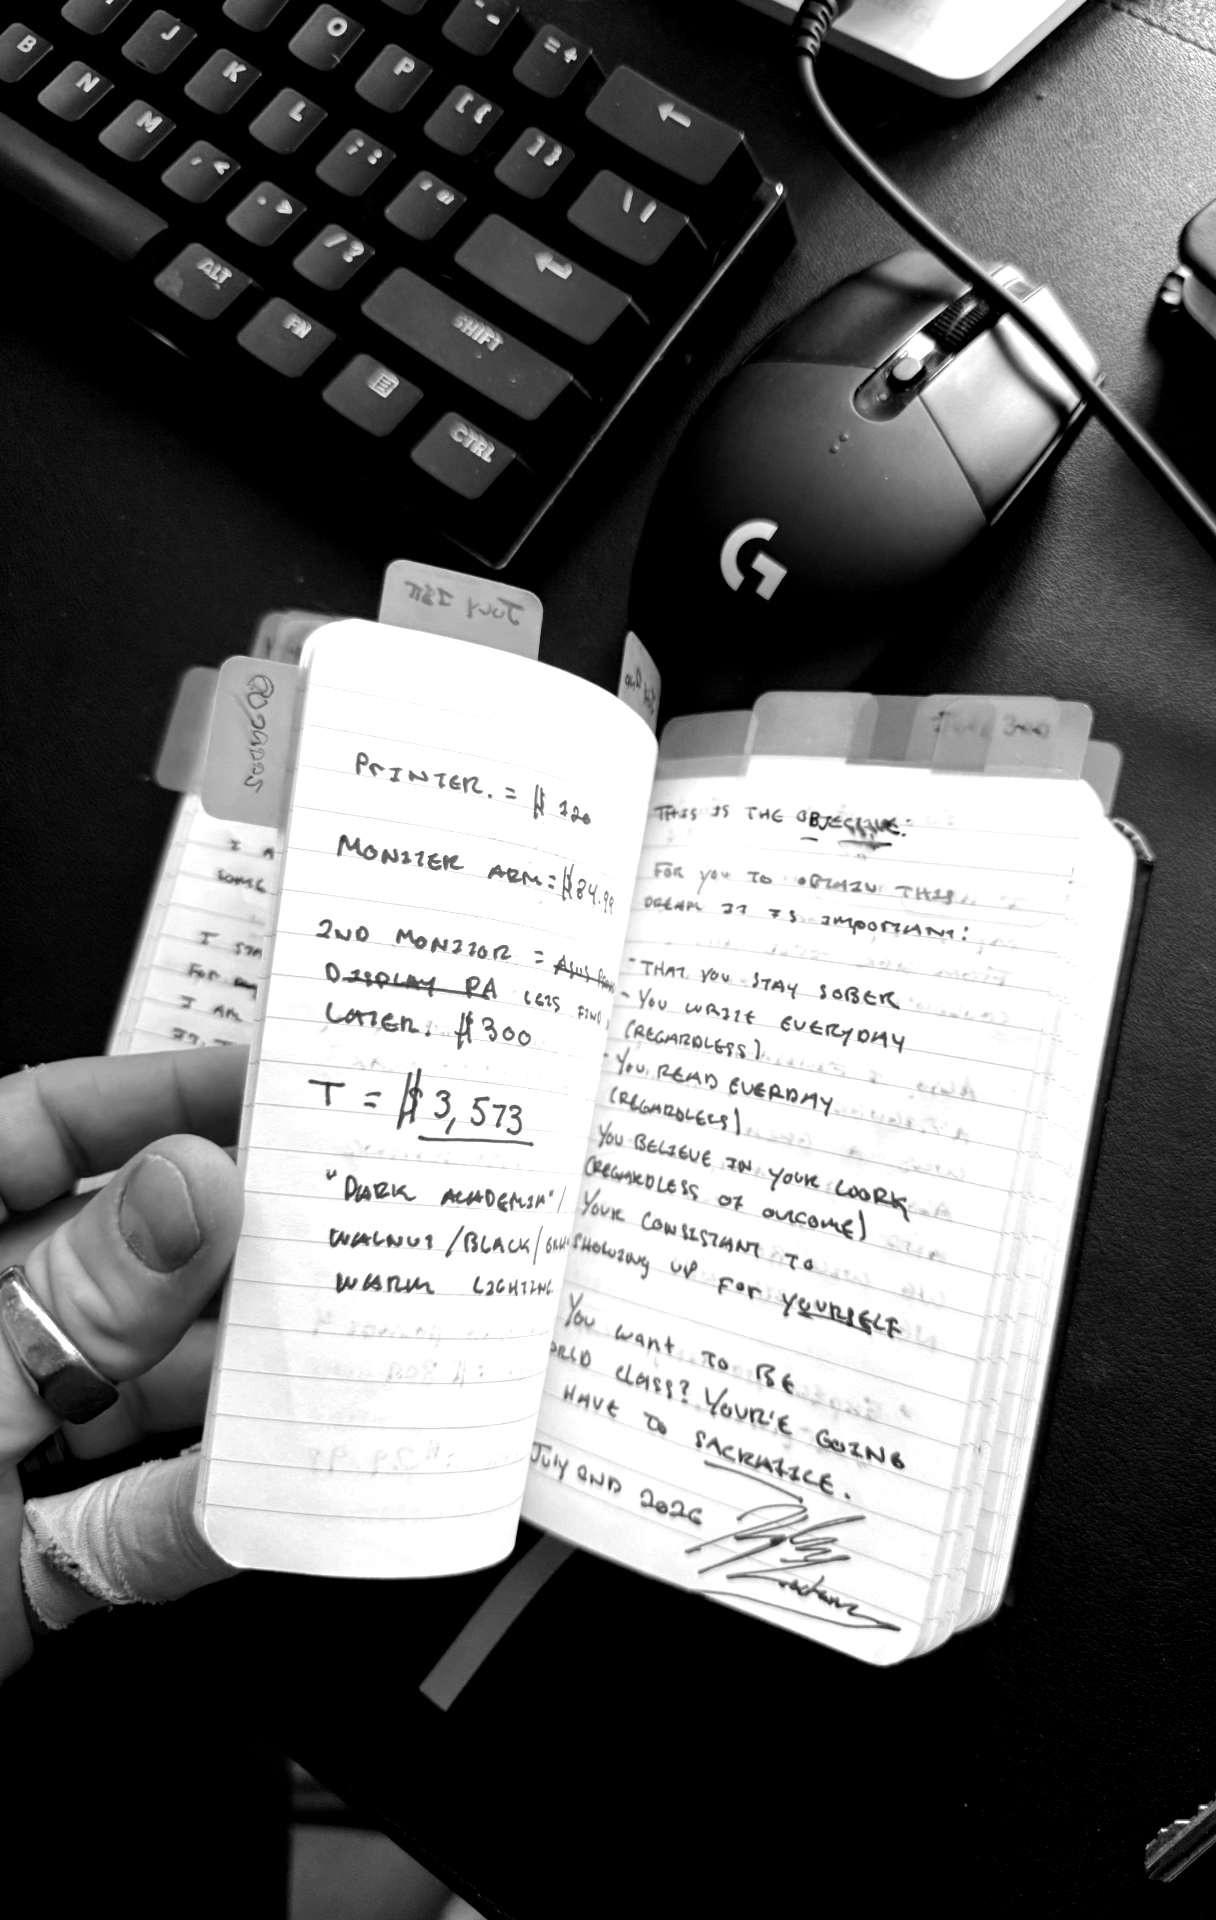 B
N
M
, <
. >
/ ?
ALT
FN
CTRL
SHIFT
J
K
L
; :
' "
O
P
[ {
] }
\ |
- _
= +
G
JULY 1ST
PRINTER. = $ 220
MONITER ARM = $84.99
2ND MONITOR = ASUS
DISPLAY PA LETS FIND
LATER. $300
T = $3,573
"DARK ACADEMIA" /
WALNUT / BLACK /
WARM LIGHTING
I A
SOME
I
FOR
I AM
THIS IS THE OBJECTIVE:
FOR YOU TO OBTAIN THIS
DREAM IT IS IMPORTANT:
- THAT YOU STAY SOBER
- YOU WRITE EVERYDAY
(REGARDLESS)
- YOU READ EVERDAY
(REGARDLESS)
YOU BELIEVE IN YOUR WORK
(REGARDLESS OF OUTCOME)
YOUR CONSISTANT TO
SHOWING UP FOR YOURSELF
YOU WANT TO BE
ORLD CLASS? YOUR'E GOING
HAVE TO SACRAFICE.
JULY 2ND 2026